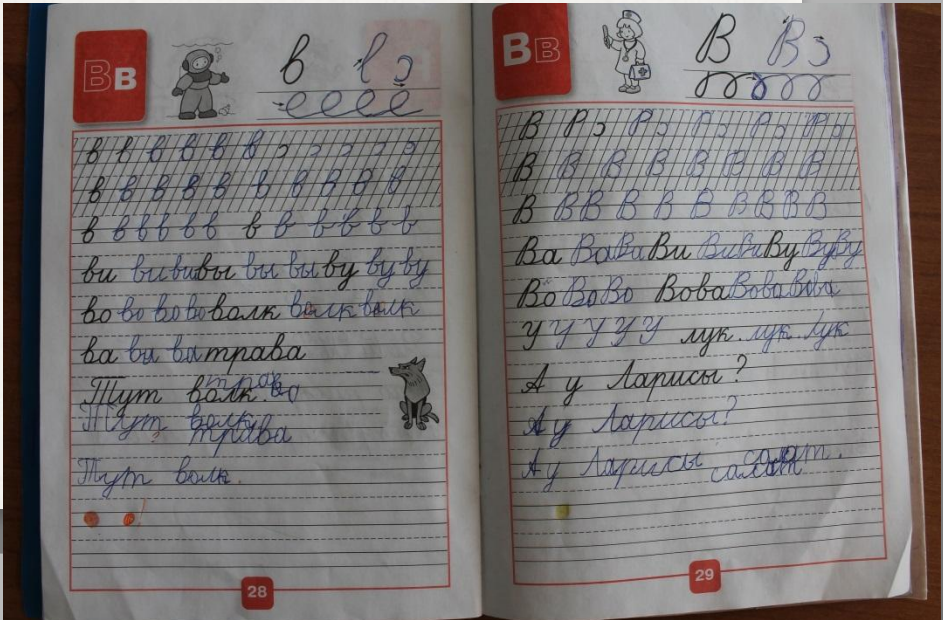 Вв
в в
в в в в в в
в в в в в в в в в в
в в в в в в в в в в в
ви ви ви вы вы вы ву ву ву
во во во во волк волк волк
ва ва ва трава
трава
Тут волк.
Тут волк
трава
Тут волк.
28
Вв
В В
В Р Р Р Р Р
В В В В В В В В
В В В В В В В В В В
Ва Ва Ва Ви Ви Ви Ву Ву Ву
Во Во Во Вова Вова Вова
У У У У У лук. лук. лук
А у Ларисы?
А у Ларисы?
А у Ларисы салат.
салат
29